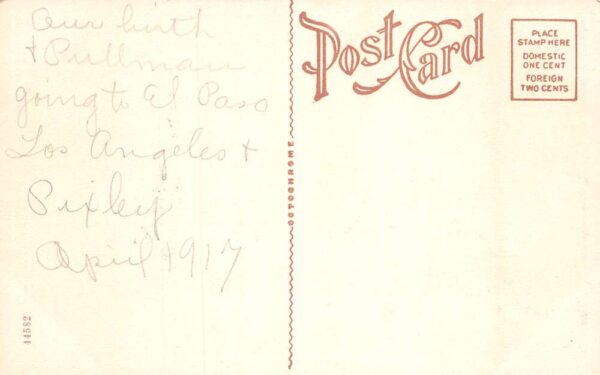 Our birth
+ Pullman
going to El Paso
Los Angeles +
Pixley
April 1917
Post Card
PLACE
STAMP HERE
DOMESTIC
ONE CENT
FOREIGN
TWO CENTS
OCTOCHROME
44582